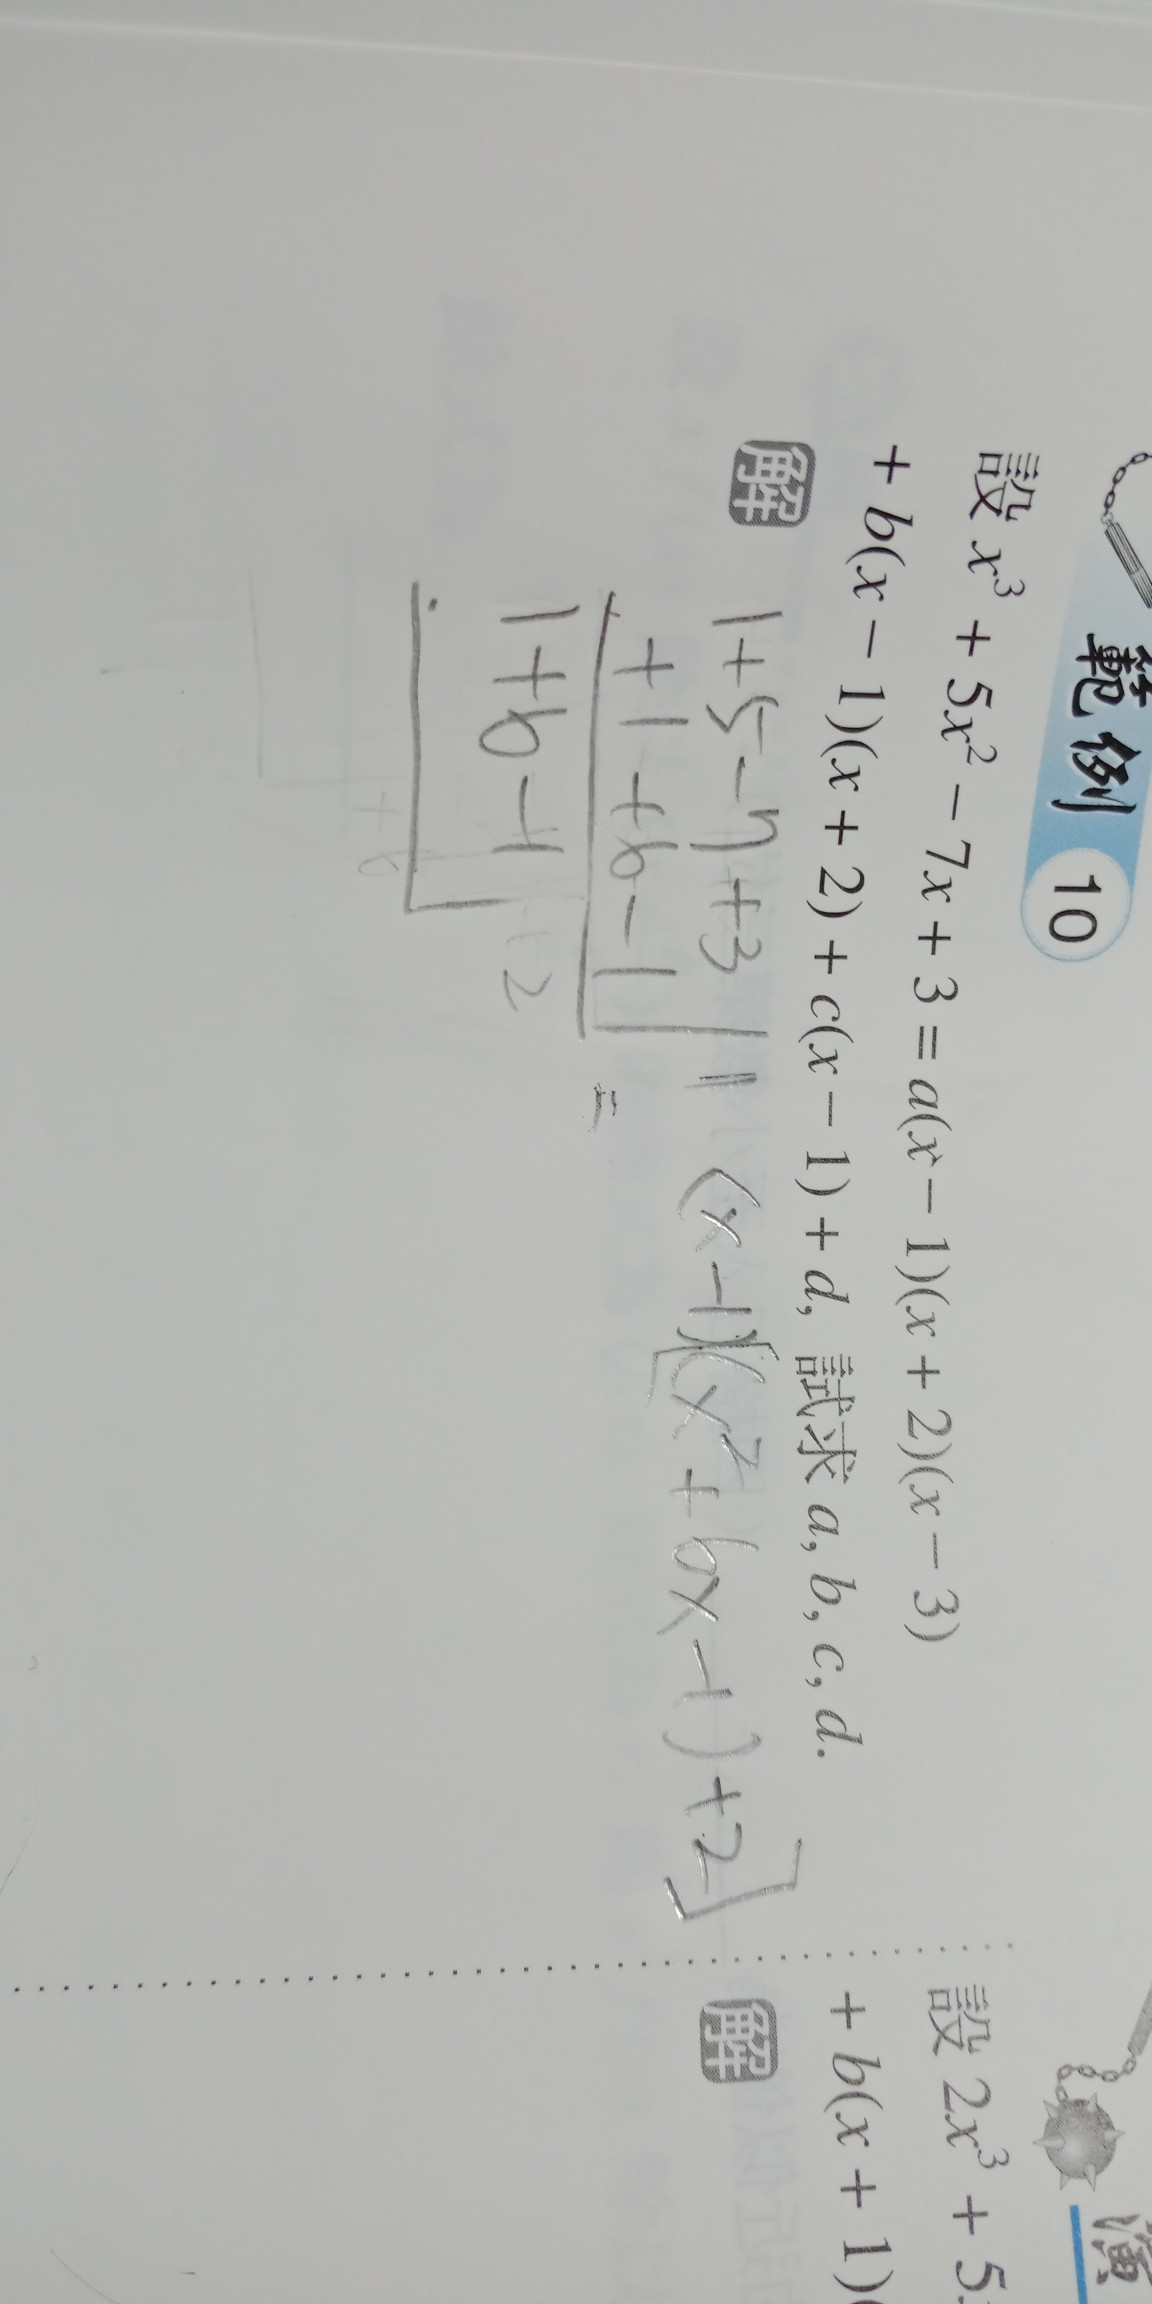 範例 10
設 x³ + 5x² − 7x + 3 = a(x − 1)(x + 2)(x − 3)
+ b(x − 1)(x + 2) + c(x − 1) + d, 試求 a, b, c, d.
解
1+5−7+3 | 1
+1+6−1
1+6−1+2
(x−1)[(x²+6x−1)+2]
+6
演
設 2x³ + 5
+ b(x + 1)(
解